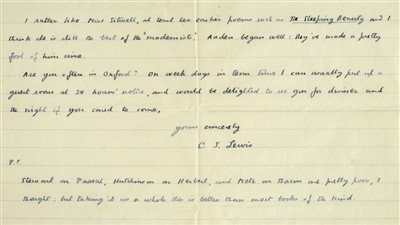 I rather like Miss Sitwell, at least her earlier poems such as The Sleeping Beauty and I
think she is still the best of the 'modernists'. Auden began well: they've made a pretty
fool of him since.
Are you often in Oxford? On week days in term time I can usually put up a
guest room at 24 hours' notice, and would be delighted to see you for dinner and
the night if you cared to come,
yours sincerely
C. S. Lewis
P.S.
Stewart on Pascal, Hutchinson on Herbert, and on Bacon are pretty poor, I
thought: but taking it as a whole this is better than most books of the kind.